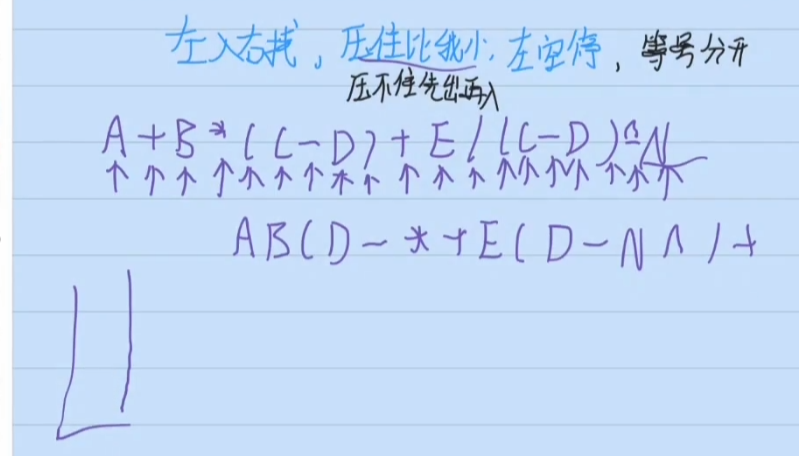 左入右找，压住比我小，左空停，等号分开
压不住先出再入
A+B*(C-D)+E/(C-D)^N
ABCD-*+ECD-N^/+